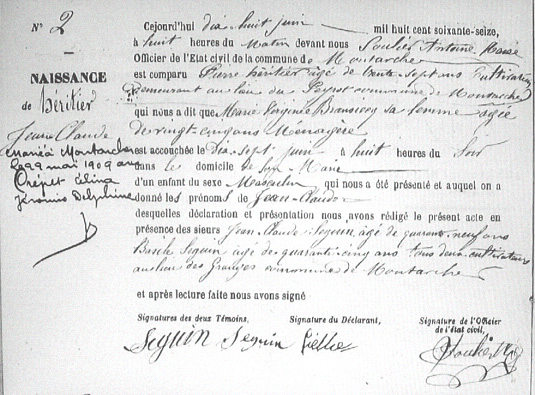 N° 2
NAISSANCE
de héritier
Jean Claude
marié à Montarcher
le 29 mai 1909 avec
Crépet Célina
Jéromis Delphine
Cejourd'hui dix huit juin mil huit cent soixante-seize,
à huit heures du Matin devant nous Soulier Antoine Maire
Officier de l'Etat civil de la commune de Montarcher
est comparu Pierre héritier âgé de trente sept ans Cultivateur
demeurant au lieu du Peyrot commune de Montarcher
qui nous a dit que Marie Virginie sa femme agée
de vingt cinq ans Ménagère
est accouchée le dix Sept juin à huit heures du Soir
dans le domicile de Son Mari
d'un enfant du sexe Masculin qui nous a été présenté et auquel on a
donné les prénoms de Jean-Claude
desquelles déclaration et présentation nous avons rédigé le présent acte en
présence des sieurs Jean Claude Seguin âgé de quarante neuf ans
Seguin âgé de quarante cinq ans tous deux cultivateurs
au lieu des Granges commune de Montarcher
et après lecture faite nous avons signé
Signatures des deux Témoins, Signature du Déclarant, Signature de l'Officier
de l'état civil,
Seguin Seguin